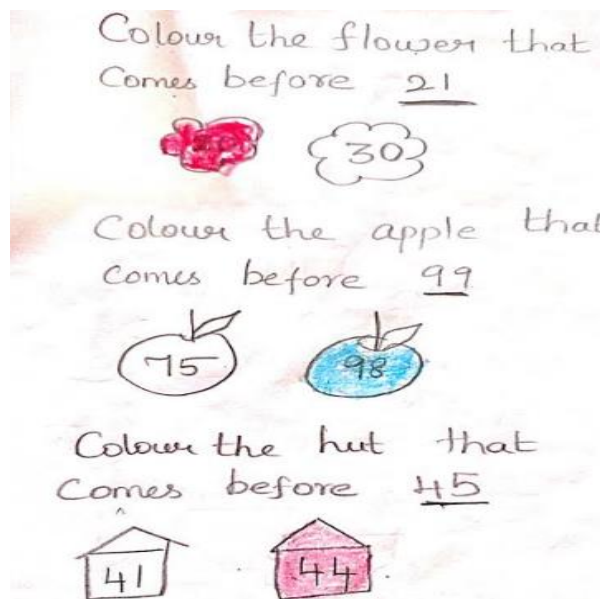 Colour the flower that
Comes before 21
30
Colour the apple that
Comes before 99
75 98
Colour the hut that
Comes before 45
41 44